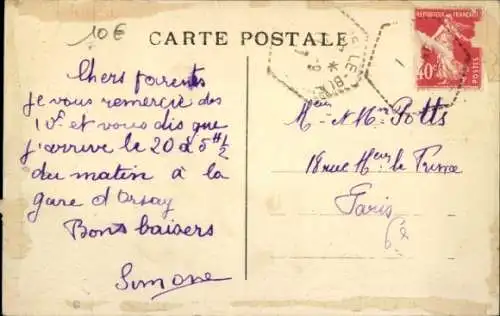 10€
CARTE POSTALE
REPUBLIQUE FRANÇAISE
40c
POSTES
LE-BL
Chers parents
je vous remercie des
10F et vous dis que
j'arrive le 20 à 5H½
du matin à la
gare d'Orsay
Bons baisers
Simone
M & Mme Potts
18 rue Mr le Prince
Paris
6e